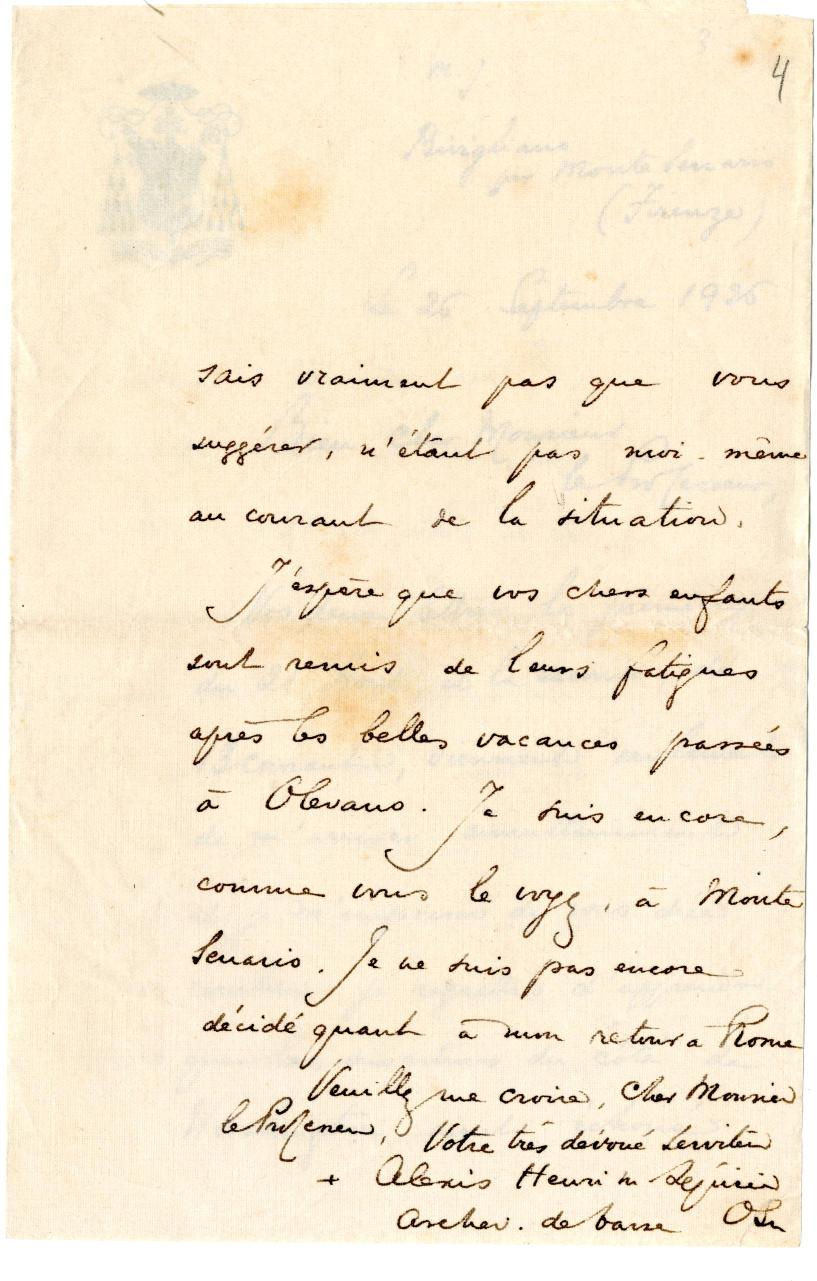 4
sais vraiment pas que vous
suggérer, n'étant pas moi-même
au courant de la situation.
J'espère que vos chers enfants
sont remis de leurs fatigues
après les belles vacances passées
à Olevano. Je suis encore,
comme vous le voyez, à Monte
Senario. Je ne suis pas encore
décidé quant à mon retour à Rome
Veuillez me croire, cher Monsieur
le Professeur, Votre très dévoué serviteur
+ Alexis Henri M Lépicier
Archev. de Tarse OSM